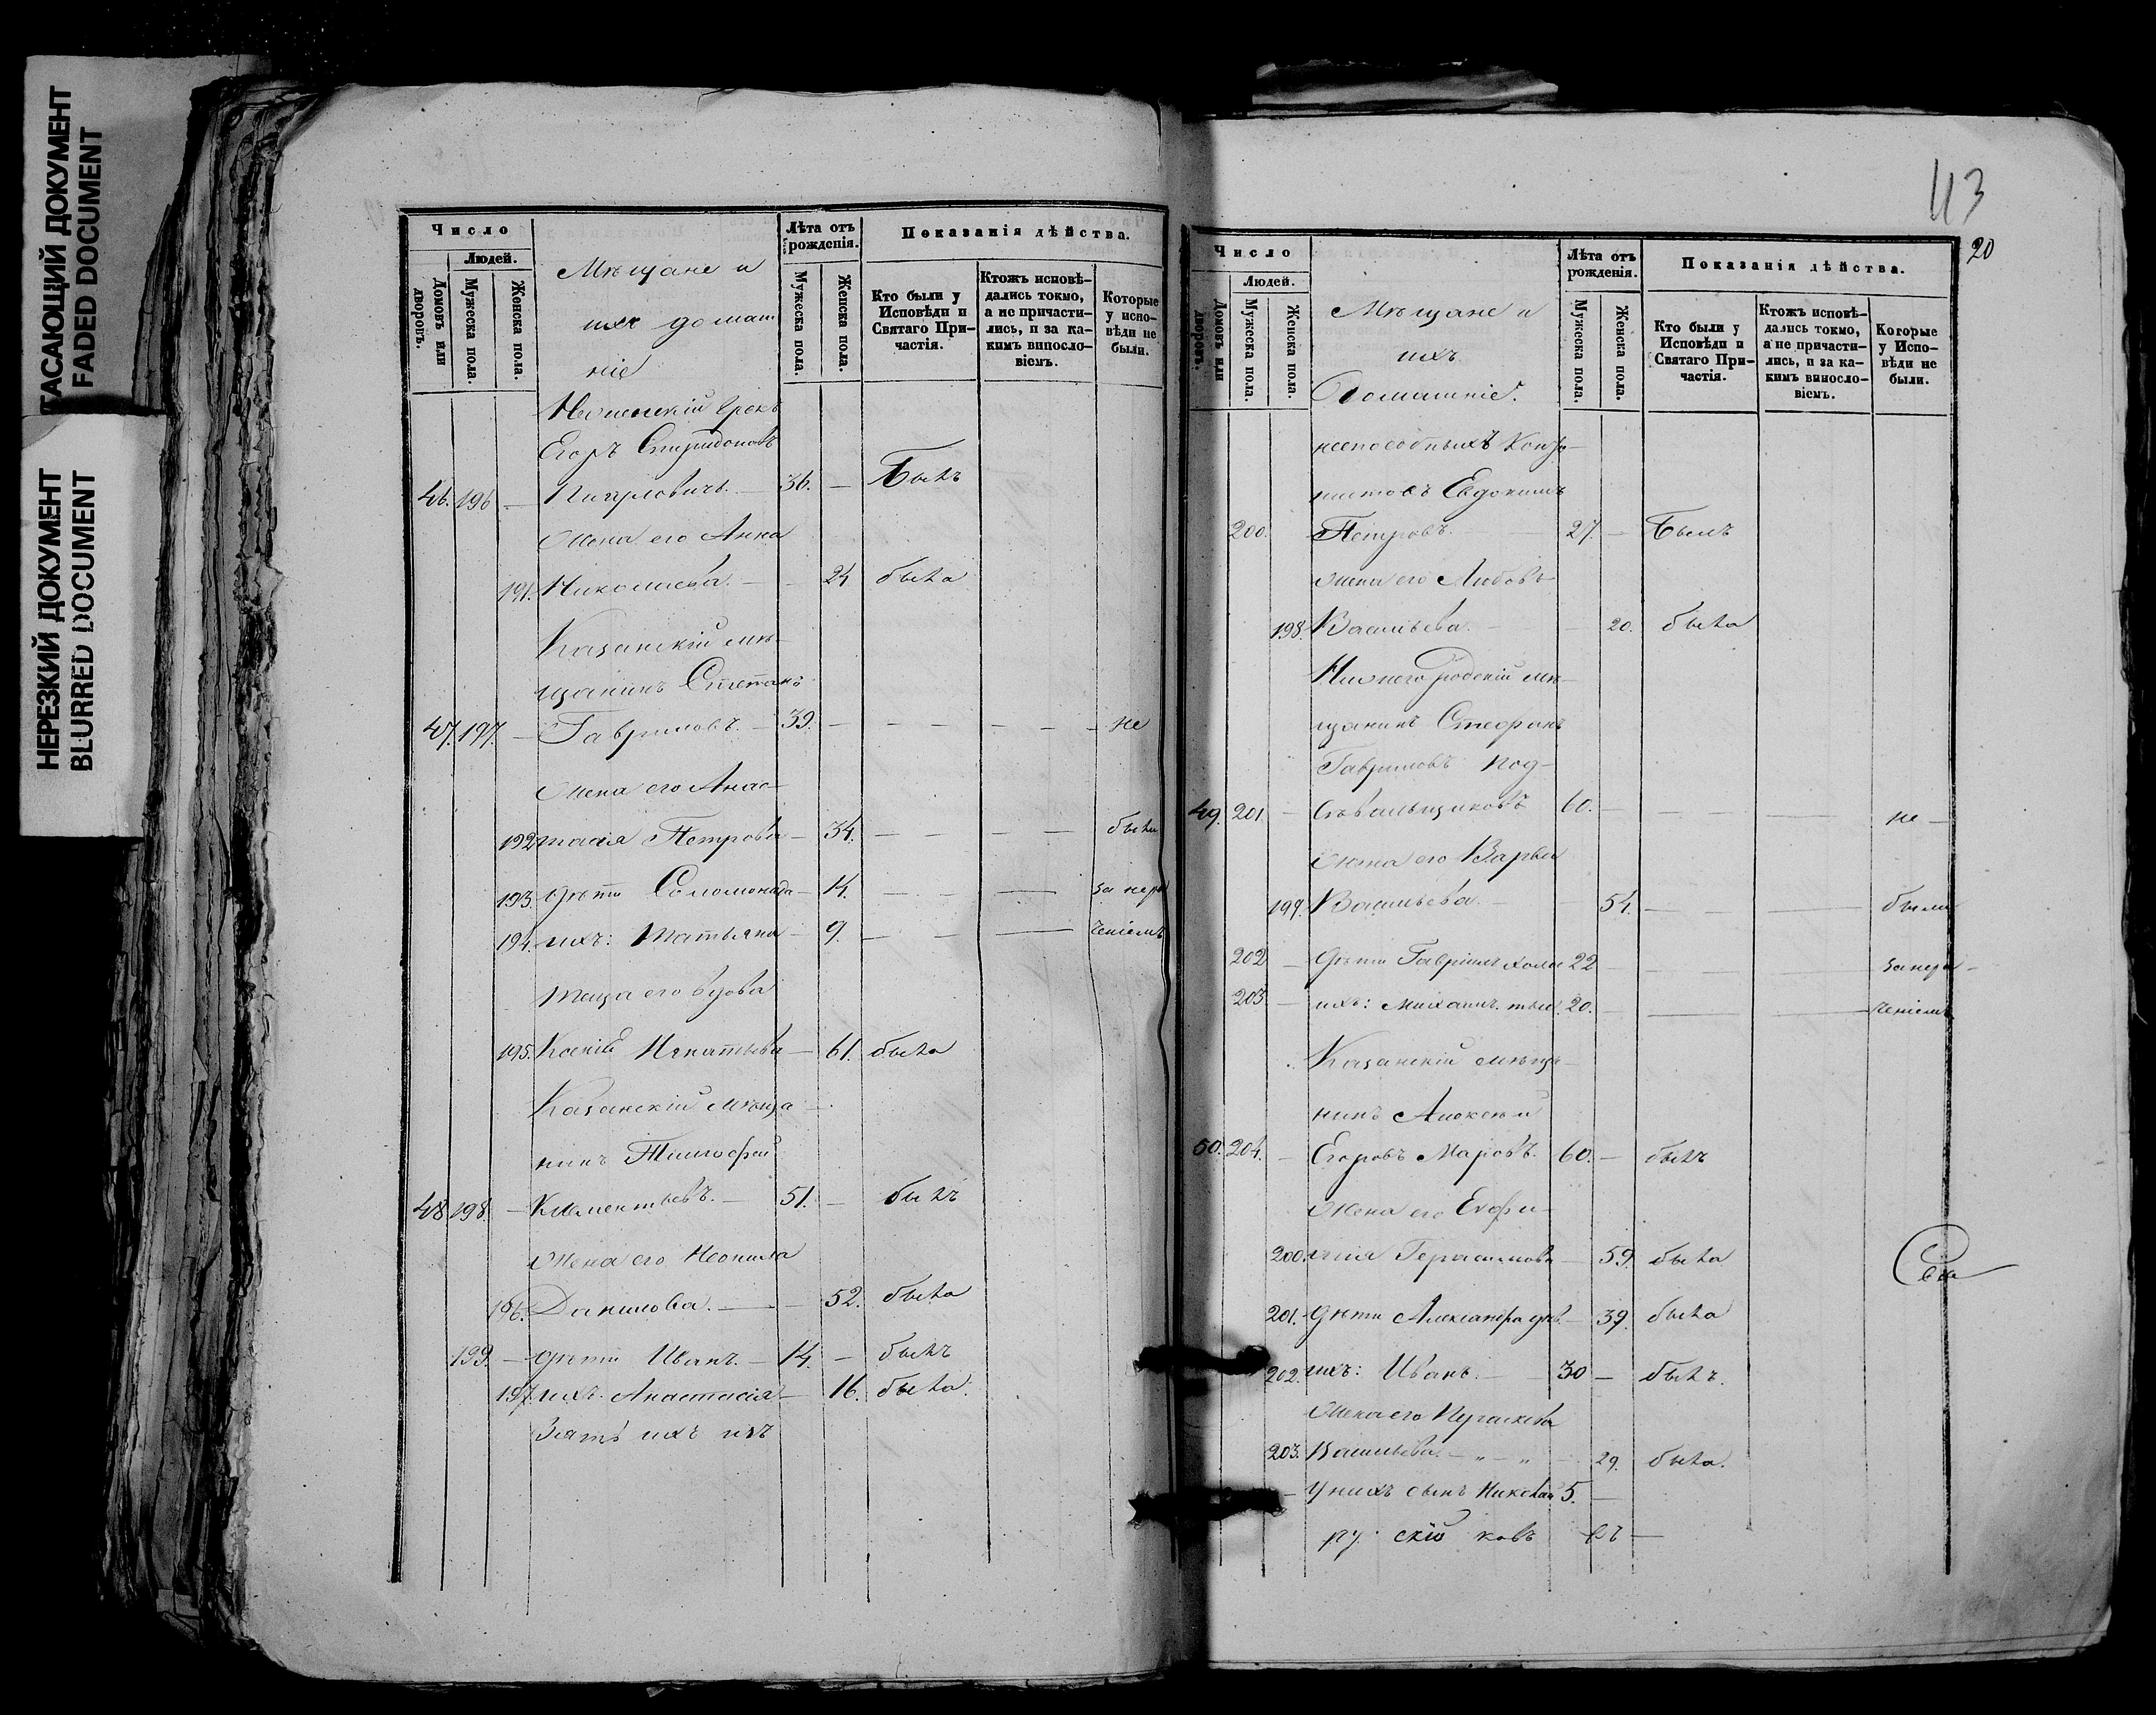 ТАСАЮЩИЙ ДОКУМЕНТ
FADED DOCUMENT
НЕРЕЗКИЙ ДОКУМЕНТ
BLURRED DOCUMENT
Число
Людей.
Домовъ или дворовъ.
Мужеска пола.
Женска пола.
Мѣщане и
ихъ домаш
ніе
Лѣта отъ рожденія.
Мужеска пола.
Женска пола.
Показанія дѣйства.
Кто были у Исповѣди и Святаго Причастія.
Ктожъ исповѣдались токмо, а не причастились, и за какимъ винословіемъ.
Которые у исповѣди не были.
Егоръ Спиридоновъ
46. 196 — 36. — Былъ
жена его Анна
191. Николаева. — 24 была
Казанскій мѣ-
щанинъ Степанъ
47. 197. — Гавриловъ. — 39. — — — — — не
жена его Анас-
192 тасія Петрова — 34. — — — — были
193. дѣти Соломонида — 14. — — — за нера
194. ихъ: Татьяна — 9. — — — ченіемъ
теща его вдова
195. Ксенія Игнатьева — 61. была
Казанскій мѣща
нинъ Тимофей
48 198. — Клементьевъ. — 51. — былъ
жена его Неонила
196. Данилова. — 52. была
199. — дѣти Иванъ. — 14. — былъ
197. ихъ. Анастасія — 16. была.
Зять ихъ изъ
43
20
Число
Людей.
Домовъ или дворовъ.
Мужеска пола.
Женска пола.
Мѣщане и
ихъ
Домашніе.
Лѣта отъ рожденія.
Мужеска пола.
Женска пола.
Показанія дѣйства.
Кто были у Исповѣди и Святаго Причастія.
Ктожъ исповѣдались токмо, а не причастились, и за какимъ винословіемъ.
Которые у Исповѣди не были.
неспособныхъ Кантo-
нистовъ Евдокимъ
200. Петровъ. — 27. — Былъ
жена его Любовь
198. Васильева. — 20. была
Нижегородскій мѣ-
щанинъ Стефанъ
Гавриловъ Под-
49. 201. — 60. — — — — не —
жена его Варва
199. Васильева. — 54. — — — были
202 — дѣти Гавріилъ холос 22 — — за нера-
203 — ихъ: Михаилъ. тые. 20. — — — ченіемъ
Казанскій мѣща-
нинъ Алексѣй
50. 204. — Егоровъ Маровъ. 60. — былъ
жена его Евфи-
200. мія Герасимова — 59. была
201. дѣти Александра дѣв. — 39. была
202. ихъ: Иванъ. — 30 — былъ.
жена его Параскева
203. Васильева. — „ — „ 29. была.
— у нихъ сынъ Николай 5. —
скій ковъ